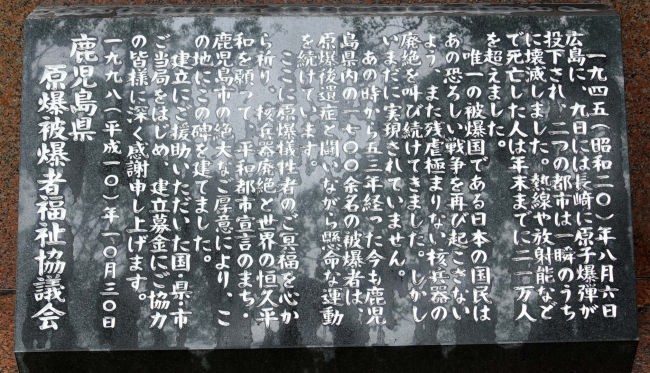 一九四五(昭和二〇)年八月六日
広島に、九日には長崎に原子爆弾が
投下され、二つの都市は一瞬のうち
に壊滅しました。熱線や放射能など
で死亡した人は年末までに二一万人
を超えました。
唯一の被爆国である日本の国民は
あの恐ろしい戦争を再び起こさない
よう、また残虐極まりない核兵器の
廃絶を叫び続けてきました。しかし
いまだに実現されていません。
あの時から五三年経った今も鹿児
島県内の一七〇〇余名の被爆者は、
原爆後遺症と闘いながら懸命な運動
を続けています。
ここに原爆犠牲者のご冥福を心か
ら祈り、核兵器廃絶と世界の恒久平
和を願って、平和都市宣言のまち・
鹿児島市の絶大なご厚意により、こ
の地にこの碑を建てました。
建立にご援助いただいた国・県・市
ご当局をはじめ、建立募金にご協力
の皆様に深く感謝申し上げます。
一九九八(平成一〇)年一〇月三〇日
鹿児島県
原爆被爆者福祉協議会